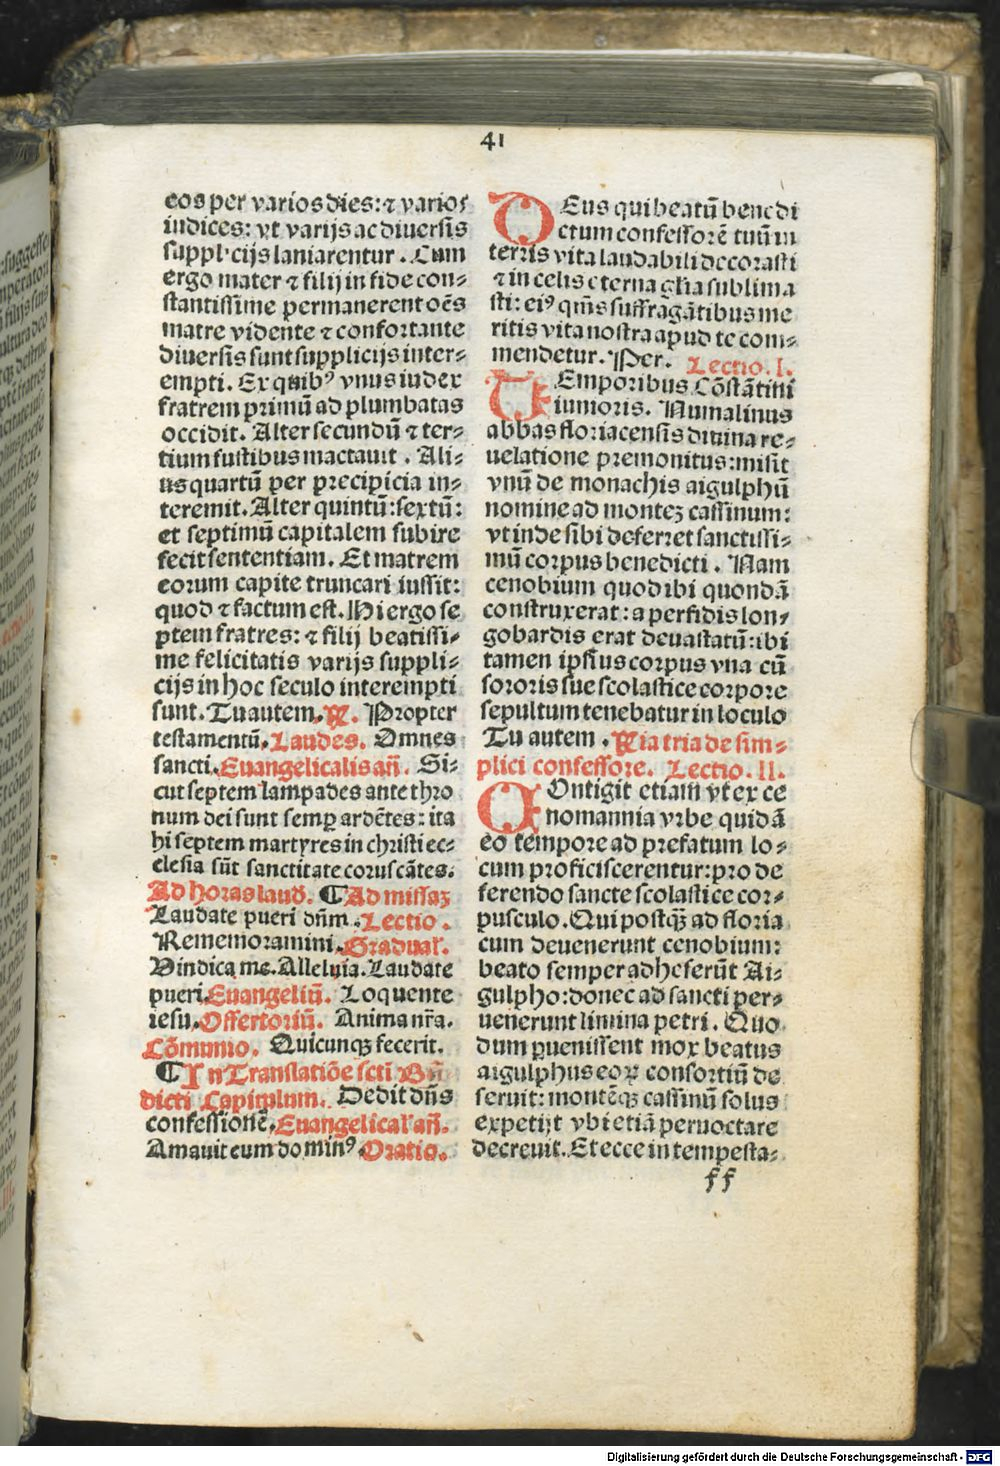 41
eos per varios dies: ⁊ varios
iudices: vt varijs ac diuersis
supplicijs laniarentur. Cum
ergo mater ⁊ filij in fide con⸗
stantissime permanerent oēs
matre vidente ⁊ confortante
diuersis sunt supplicijs inter⸗
empti. Ex quibꝰ vnus iudex
fratrem primū ad plumbatas
occidit. Alter secundū ⁊ ter⸗
tium fustibus mactauit. Ali⸗
us quartū per precipicia in⸗
teremit. Alter quintū: sextū:
et septimū capitalem subire
fecit sententiam. Et matrem
eorum capite truncari iussit:
quod ⁊ factum est. Hi ergo se
ptem fratres: ⁊ filij beatissi⸗
me felicitatis varijs suppli⸗
cijs in hoc seculo interempti
sunt. Tu autem. ℟. Propter
testamentū. Laudes. Omnes
sancti. Euangelicalis añ. Si⸗
cut septem lampades ante thro
num dei sunt semꝑ ardētes: ita
hi septem martyres in christi ec⸗
clesia sūt sanctitate coruscātes.
Ad horas laud. ¶ Ad missaꝫ
Laudate pueri dñm. Lectio.
Rememoramini. Gradual'.
Vindica me. Alleluia. Laudate
pueri. Euangeliū. Loquente
iesu. Offertoriū. Anima nr̄a.
Cōmunio. Quicunqꝫ fecerit.
¶ In Translatiōe scti Bn̄
dicti Capitulum. Dedit dn̄s
confessionē. Euangelical' añ.
Amauit eum dominꝰ. Oratio.
DEus qui beatū benedi
ctum confessorē tuū in
terris vita laudabili decorasti
⁊ in celis eterna gl̄ia sublima
sti: eiꝰ qm̄s suffragātibus me
ritis vita nostra apud te com⸗
mendetur. Per. Lectio. I.
TEmporibus Cōstātini
iunioris. Numalinus
abbas floriacensis diuina re⸗
uelatione premonitus: misit
vnū de monachis aigulphū
nomine ad monteꝫ cassinum:
vt inde sibi deferret sanctissi⸗
mū corpus benedicti. Nam
cenobium quod ibi quondā
construxerat: a perfidis lon⸗
gobardis erat deuastatū: ibi
tamen ipsius corpus vna cū
sororis sue scolastice corpore
sepultum tenebatur in loculo
Tu autem. ℟ia tria de sim⸗
plici confessore. Lectio. II.
COntigit etiam vt ex ce
nomannia vrbe quidā
eo tempore ad prefatum lo⸗
cum proficiscerentur: pro de
ferendo sancte scolastice cor⸗
pusculo. Qui postqꝫ ad floria
cum deuenerunt cenobium:
beato semper adheserūt Ai⸗
gulpho: donec ad sancti per⸗
uenerunt limina petri. Quo
dum ꝑuenissent mox beatus
aigulphus eoꝝ consortiū de
seruit: montēqꝫ cassinū solus
expetijt vbi etiā pernoctare
decreuit. Et ecce in tempesta⸗
ff
Digitalisierung gefördert durch die Deutsche Forschungsgemeinschaft - DFG